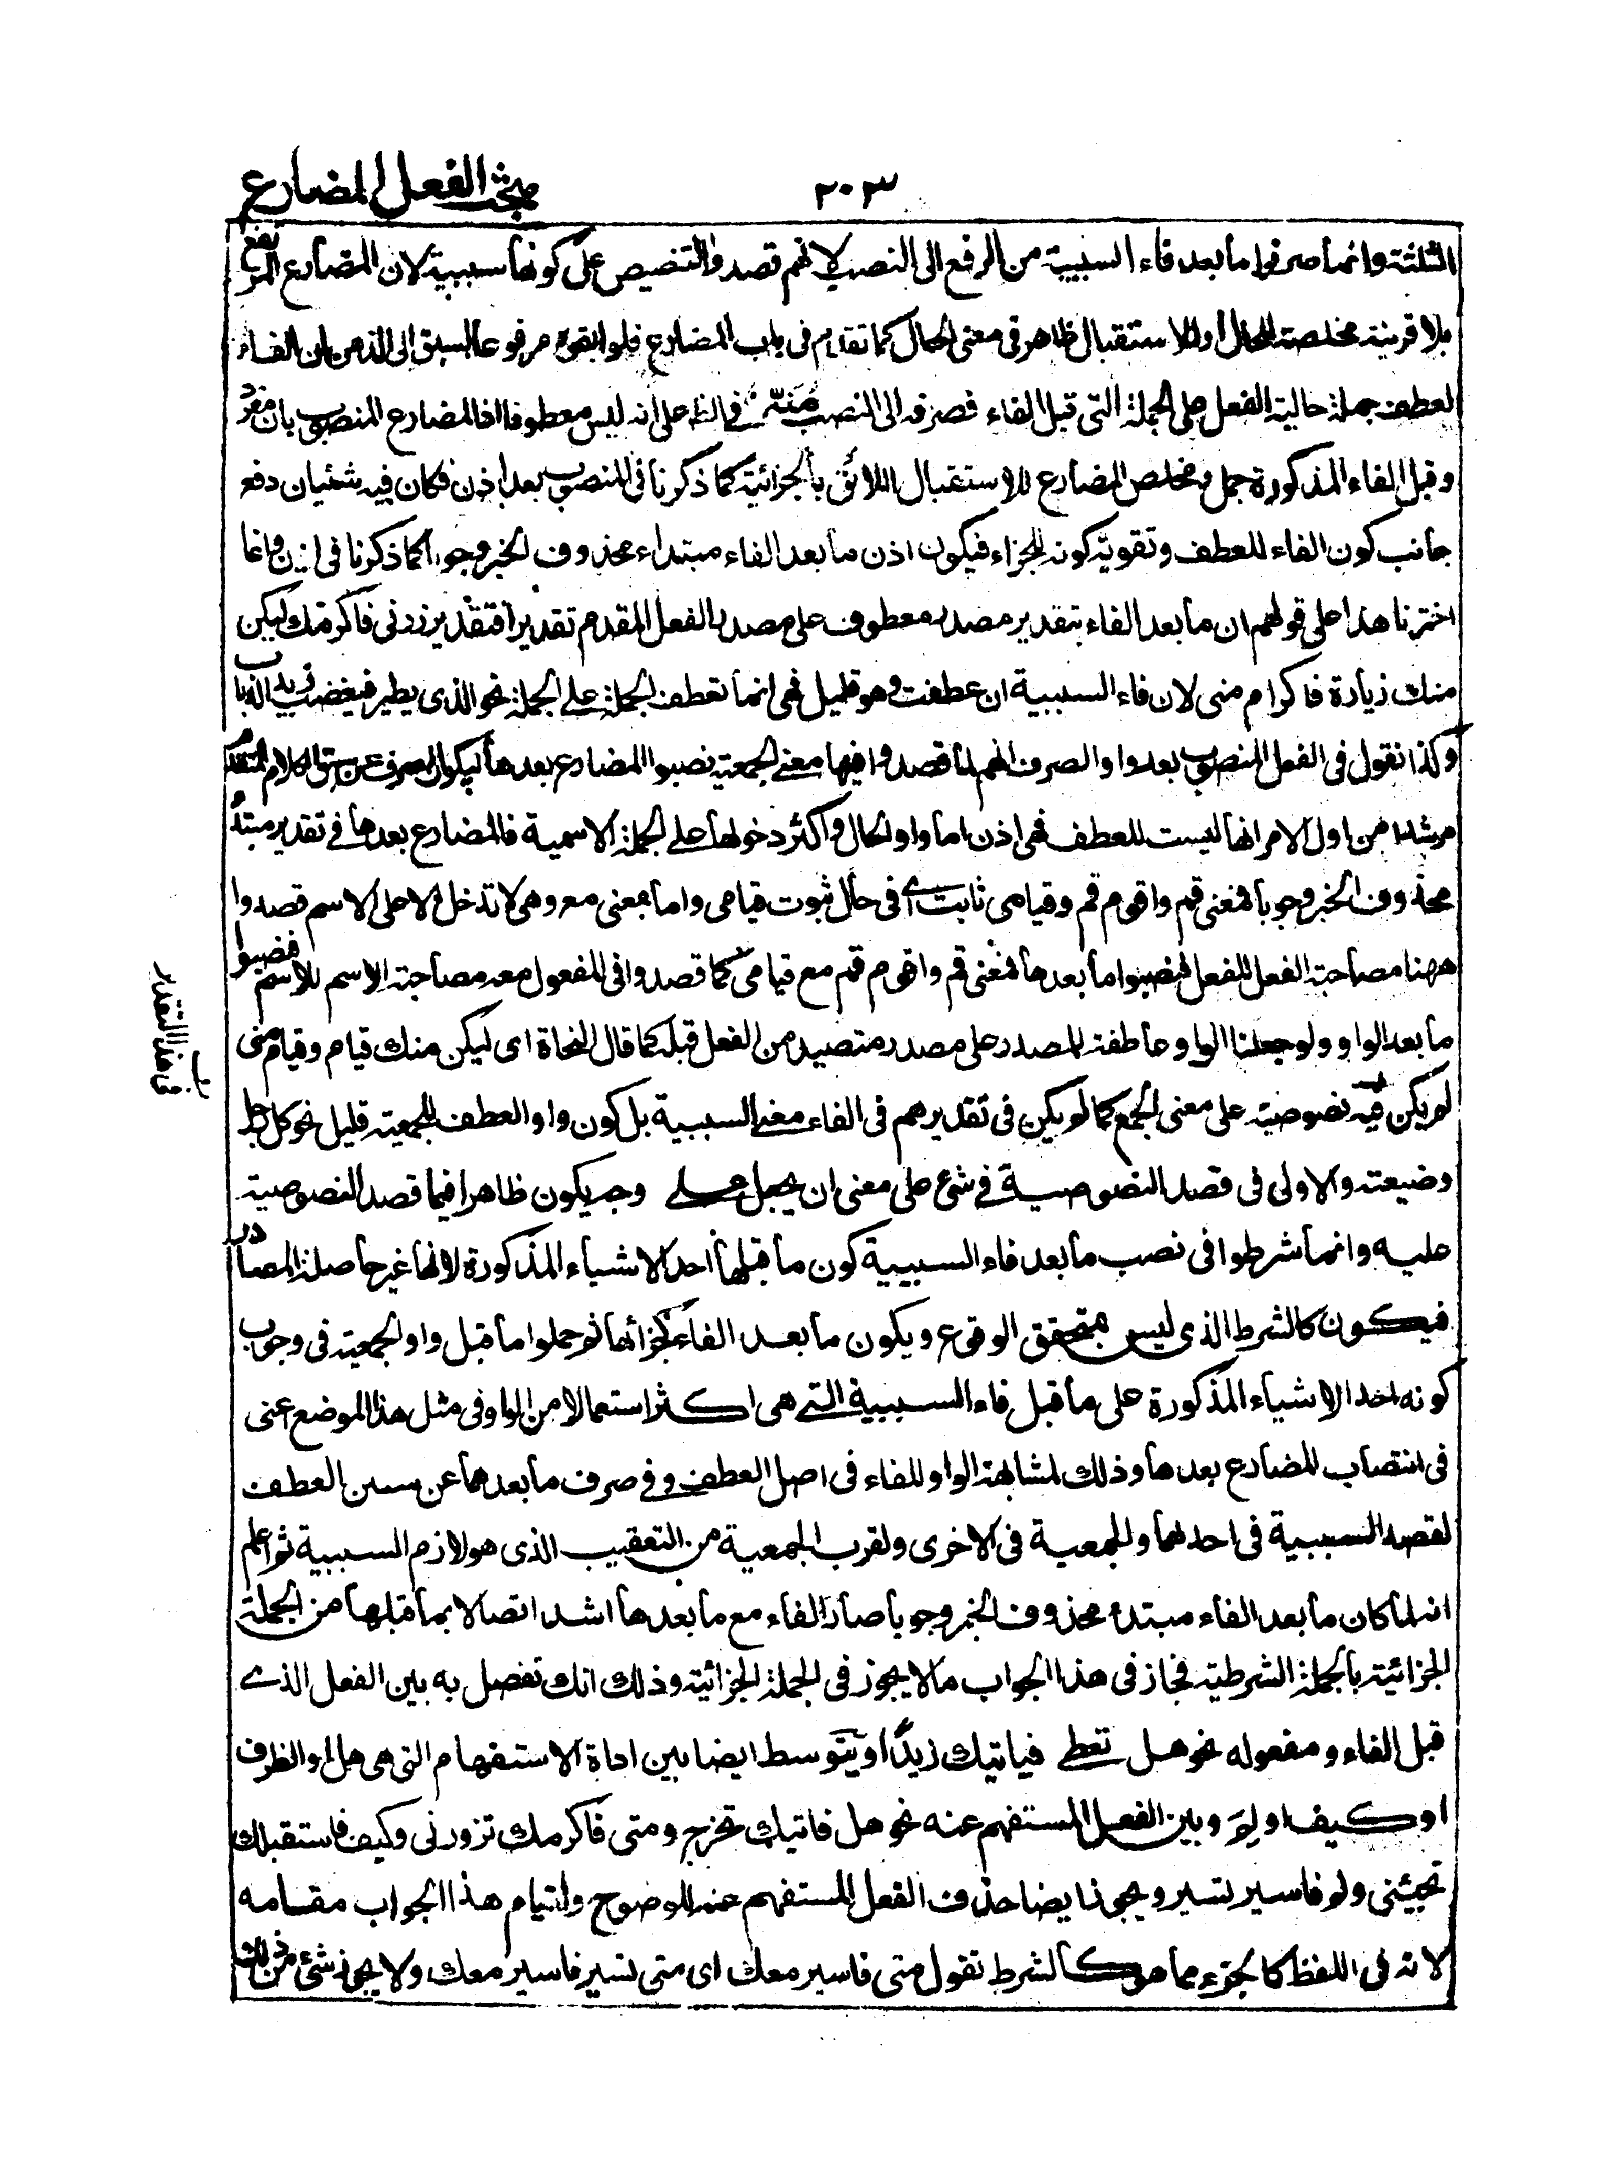 مبحث الفعل المضارع
٢٠٣
الثلثة وانما صرفوا ما بعد فاء السببية من الرفع الى النصب لانهم قصدوا التنصيص على كونها سببية لان المضارع المرتفع
بلا قرينة مخلصة للحال او الاستقبال ظاهر في معنى الحال كما تقدم في باب المضارع فلو ابقوه مرفوعا لسبق الى الذهن ان الفاء
لعطف جملة حالية الفعل على الجملة التى قبل الفاء فصرفه الى النصب منبه في الظ على انه ليس معطوفا اذ المضارع المنصوب بان مفرد
وقبل الفاء المذكورة جمل ومخلص المضارع للاستقبال اللائق بالجزائية كما ذكرنا في المنصوب بعد اذن فكان فيه شئيان دفع
جانب كون الفاء للعطف وتقوية كونه للجزاء فيكون اذن ما بعد الفاء مبتداء محذوف الخبر وجوبا كما ذكرنا في اذن وانما
اخترنا هذا على قولهم ان ما بعد الفاء بتقدير مصدر معطوف على مصدر الفعل المقدم تقديرا فتقدير زرني فاكرمك ليكن
منك زيارة فاكرام منى لان فاء السببية ان عطفت وهو قليل فهى انما تعطف الجملة على الجملة نحو الذى يطير فيغضب زيد الذباب
وكذا نقول في الفعل المنصوب بعد واو الصرف انهم لما قصدوا فيها معنى الجمعية نصبوا المضارع بعدها ليكون الصرف عن سنن الكلام المتقدم
مرشدا من اول الامر انها ليست للعطف فهى اذن اما واو الحال واكثر دخولها على الجملة الاسمية فالمضارع بعدها في تقدير مبتدأ
محذوف الخبر وجوبا فمعنى قم واقوم قم وقيامى ثابت اى في حال ثبوت قيامى واما بمعنى مع وهى لا تدخل الا على الاسم قصدوا
ههنا مصاحبة الفعل للفعل فنصبوا ما بعدها فمعنى قم واقوم قم مع قيامى كما قصدوا في المفعول معه مصاحبة الاسم للاسم فنصبوا
ما بعد الواو ولو جعلنا الواو عاطفة للمصدر على مصدر متصيد من الفعل قبله كما قال النحاة اى ليكن منك قيام وقيام منى
لم يكن فيه نصوصية على معنى الجمع كما لم يكن في تقديرهم في الفاء معنى السببية بل كون واو العطف للجمعية قليل نحو كل رجل
وضيعته والاولى في قصد النصوصية في شئ على معنى ان يجعل على وجه يكون ظاهرا فيما قصد النصوصية
عليه وانما شرطوا في نصب ما بعد فاء السببية كون ما قبلها احد الاشياء المذكورة لانها غير حاصلة المصادر
فيكون كالشرط الذى ليس متحقق الوقوع ويكون ما بعد الفاء كجزائها ثم حملوا ما قبل واو الجمعية في وجوب
كونه احد الاشياء المذكورة على ما قبل فاء السببية التى هى اكثر استعمالا من الواو في مثل هذا الموضع اعنى
في انتصاب المضارع بعدها وذلك لمشابهة الواو للفاء في اصل العطف وفي صرف ما بعدها عن سنن العطف
لقصد السببية في احدهما والجمعية في الاخرى ولقرب الجمعية من التعقيب الذى هو لازم السببية ثم اعلم
انه لما كان ما بعد الفاء مبتدء محذوف الخبر وجوبا صار الفاء مع ما بعدها اشد اتصالا بما قبلها من الجملة
الجزائية بالجملة الشرطية فجاز في هذا الجواب ما لا يجوز في الجملة الجزائية وذلك انك تفصل به بين الفعل الذى
قبل الفاء ومفعوله نحو هل تعطى فياتيك زيدًا ويتوسط ايضا بين اداة الاستفهام التى هى هل او الظرف
او كيف او لم وبين الفعل المستفهم عنه نحو هل فاتيك تخرج ومتى فاكرمك تزورني وكيف فاستقبلك
تجيئنى ولم فاسير تسير ويجوز ايضا حذف الفعل المستفهم عنه للوضوح ولقيام هذا الجواب مقامه
لانه في اللفظ كالجزء مما هو كالشرط تقول متى فاسير معك اى متى تسير فاسير معك ولا يجوز شئ من ذلك
في هذا التقدير